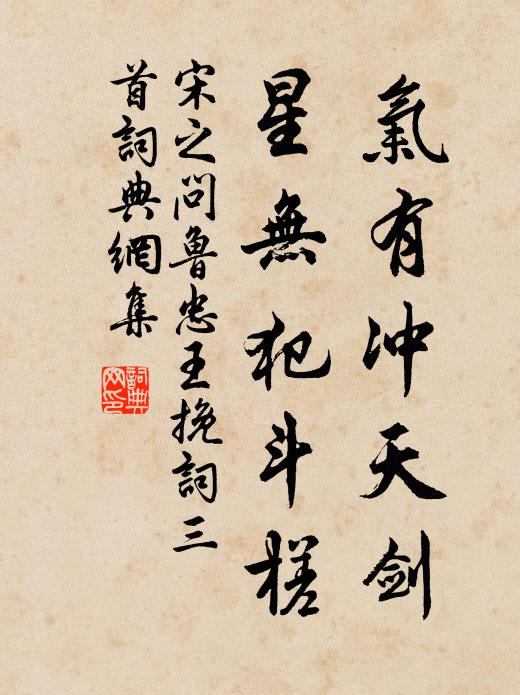 氣有冲天剑
星無犯斗槎
宋之问鲁忠王挽詞三
首詞典網集
詞典
网印